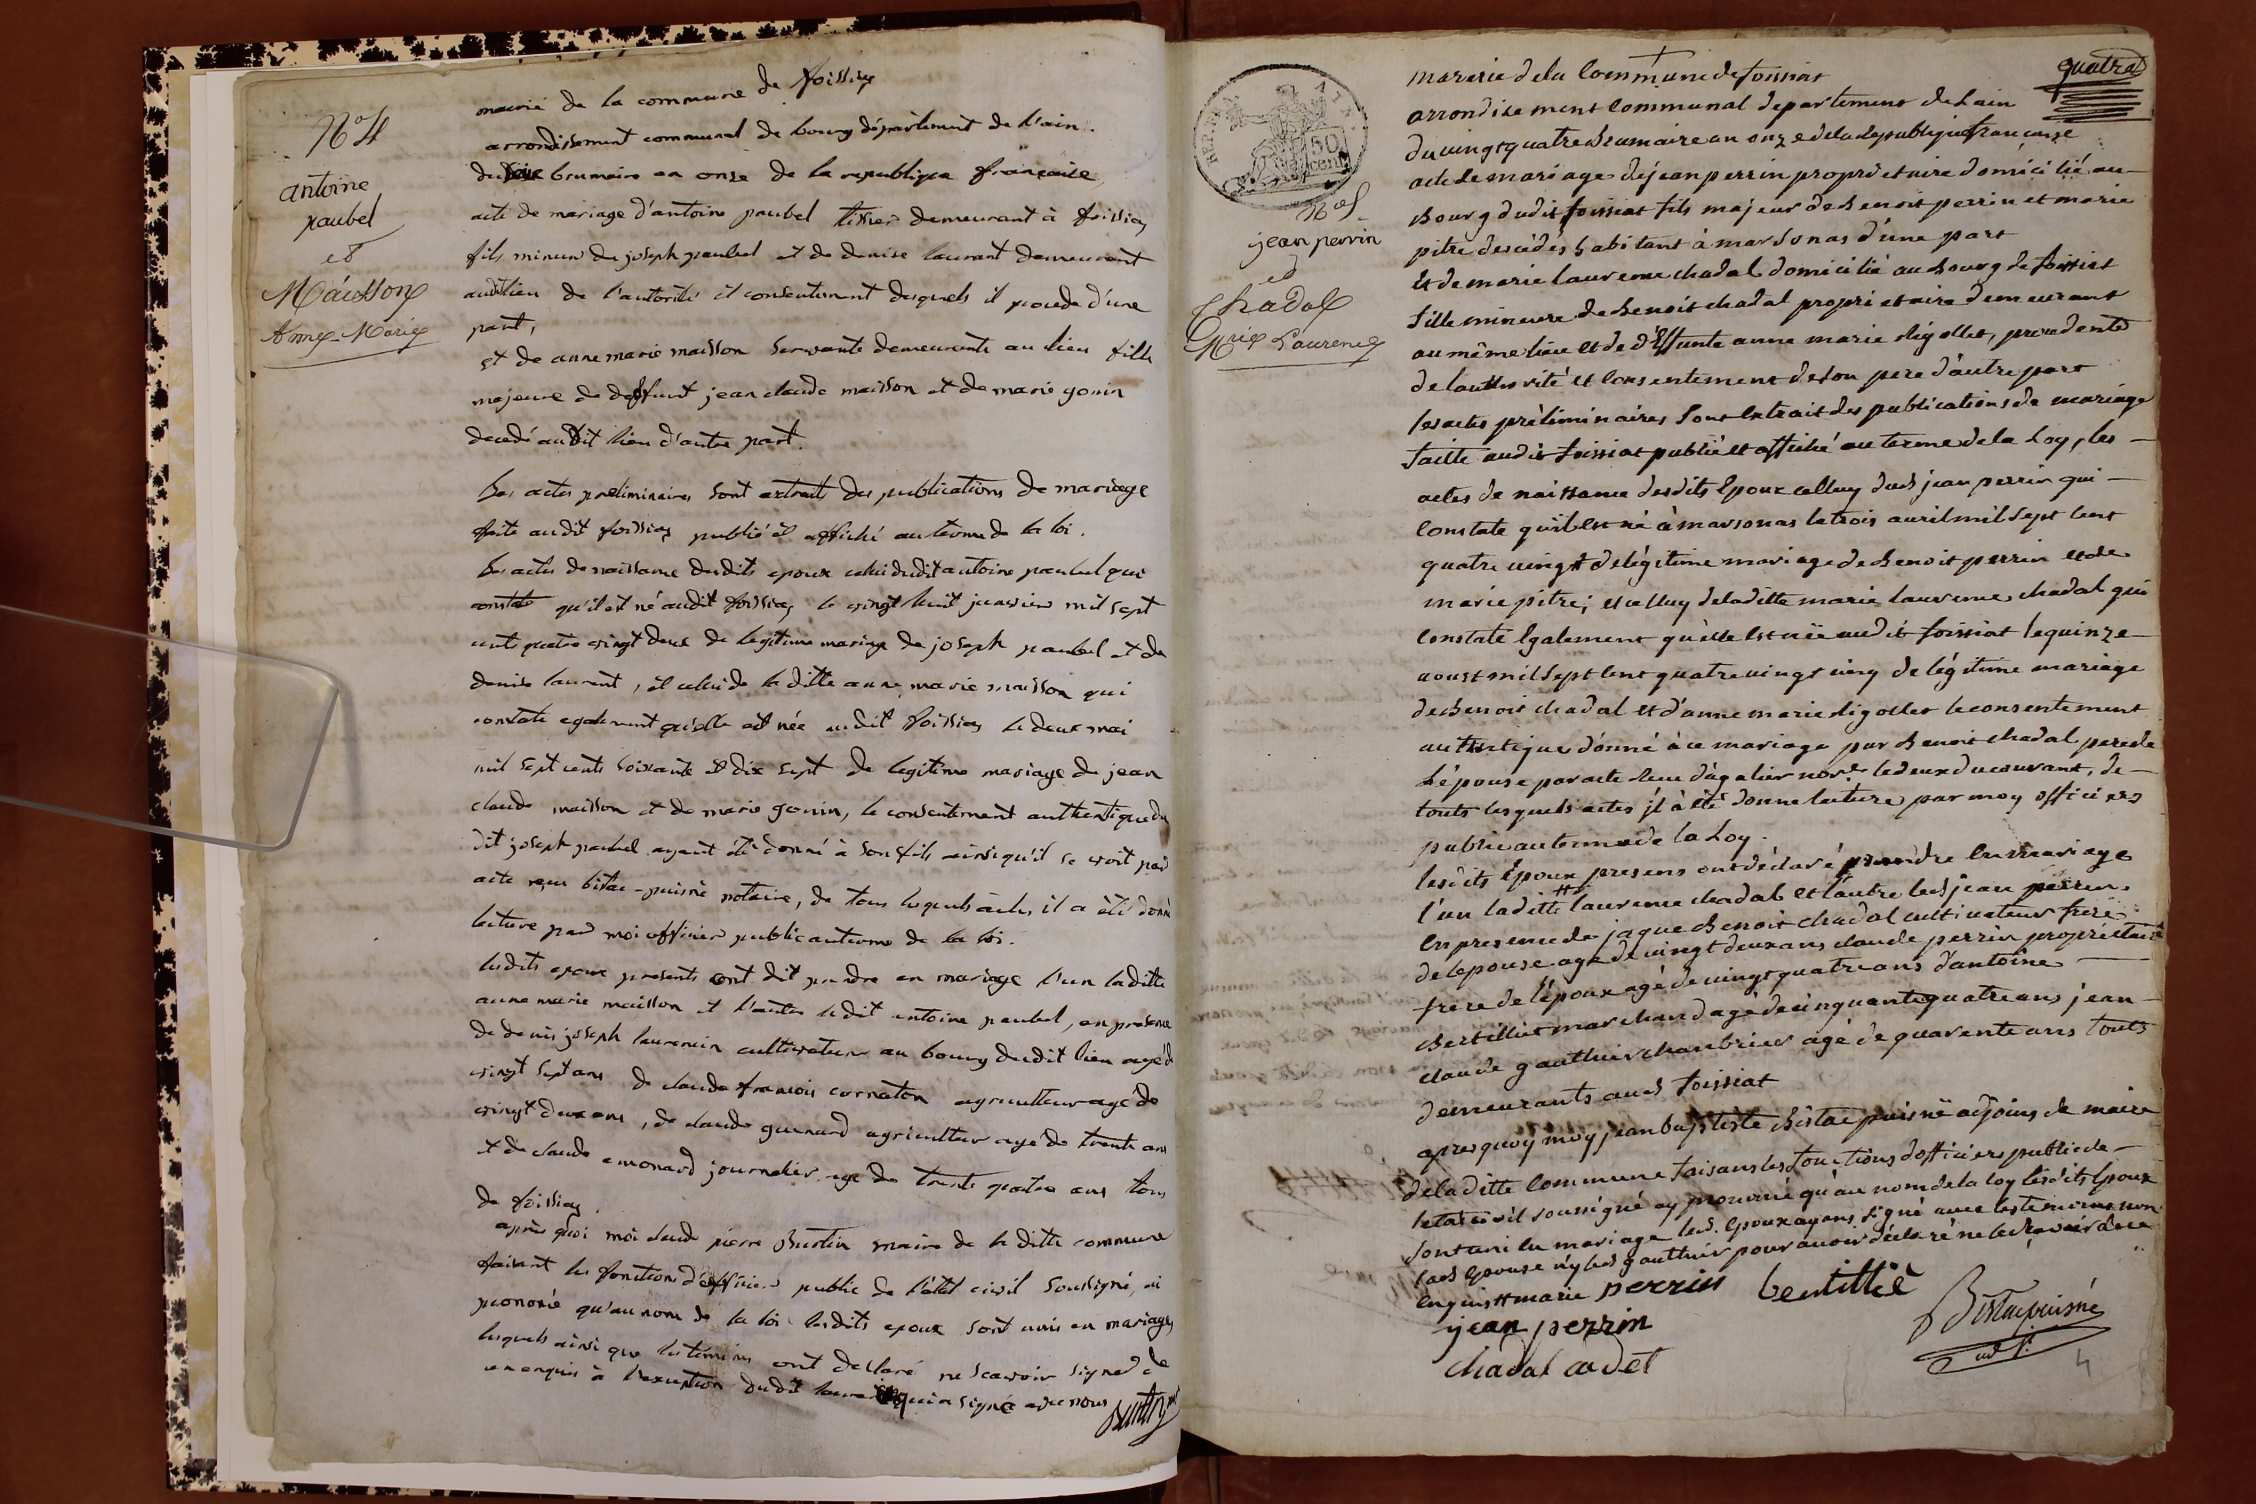 N° 4
antoine
paubel
et
Maisson
Anne Marie
mairie de la commune de foissiay
arrondissement communal de bourg département de l'ain.
du brumaire an onze de la republique française
acte de mariage d'antoine paubel tissier demeurant à foissiay
fils mineur de joseph paubel et de denise laurant demeurant
audit lieu de l'autorité et consentement desquels il procede d'une
part,
et de anne marie maisson servante demeurante au lieu fille
majeure de deffunt jean claude maisson et de marie gonin
decedé audit lieu d'autre part.
Les actes preliminaires sont extrait des publications de mariage
faite audit foissiay publié et affiché au terme de la loi.
Les actes de naissance desdits epoux celui dudit antoine paubel qui
constate qu'il est né audit foissiay le vingt huit janvier mil sept
cents quatre vingt deux de legitime mariage de joseph paubel et de
denise laurent, et celui de la ditte anne marie maisson qui
constate egalement qu'elle est née audit foissiay le deux mai
mil sept cents soixante et dix sept de legitime mariage de jean
claude maisson et de marie gonin, le consentement authentique du
dit joseph paubel ayant été donné à son fils ainsi qu'il se voit par
acte reçu bistac-puisné notaire, de tous lesquels actes il a été donné
lecture par moi officier public au terme de la loi.
lesdits epoux presents ont dit prendre en mariage l'un laditte
anne marie maisson et l'autre ledit antoine paubel, en presence
de denis joseph laurencin cultivateur au bourg dudit lieu agé de
vingt sept ans de claude françois cornaton agriculteur agé de
vingt deux ans, de claude guenard agriculteur agé de trente ans
et de claude emonard journalier agé de trente quatre ans tous
de foissiay.
après quoi moi claude pierre Buathier maire de la ditte commune
faisant les fonctions d'officier public de l'état civil soussigné, ai
prononcé qu'au nom de la loi lesdits epoux sont unis en mariage,
lesquels ainsi que les témoins ont declaré ne scavoir signer de
ce enquis à l'exception dudit qui a signé avec nous
50
cent
N° 5
jean perrin
et
Chadal
Marie Laurence
quatre
mairerie de la Commune de foissiat
arrondisement Communal departement de Lain
du vingt quatre Brumaire an onze de la Republique française
acte de mariage de jean perrin proprietaire domicilié au
Bourg dudit foissiat fils majeur de Benoit perrin et marie
pitre decédés habitant à marsonas d'une part
Et de marie laurence chadal domicilié au Bourg de foissiat
fille mineure de Benoit chadal proprietaire demeurant
au même lieu et de déffunte anne marie Rigollet, procedente
de lauthorité et Consentement de son pere d'autre part
les actes préliminaires sont Extrait des publications de mariage
faitte audit foissiat publié et affiché au terme de la Loy, les
actes de naissance desdits Epoux celluy dud jean perrin qui
Constate qu'il Est né à marsonas le trois avril mil sept Cent
quatre vingt de légitime mariage de Benoit perrin et de
marie pitre; et celluy de laditte marie laurence chadal qui
Constate Egalement quèlle Est née audit foissiat le quinze
aoust mil sept Cent quatre vingt cinq de légitime mariage
de Benoit chadal et d'anne marie Rigollet le consentement
authentique donné à ce mariage par Benoit chadal pere de
l'épouse par acte Reçu dágalier nore le deux du courant, de
touts lesquels actes il à été donné lecture par moy officiers
public au terme de la Loy.
lesdits Epoux presens ont déclaré prendre En mariage
l'un laditte laurence chadal et l'autre led jean perrin
En presence de jaque Benoit chadal cultivateur frere
de lepouse agé de vingt deux ans claude perrin propriétaire
frere de l'époux agé de vingt quatre ans d'antoine
Bertillier marchand agé de cinquante quatre ans jean
claude gauthier chambrier agé de quarente ans touts
demeurants aud foissiat
apres quoy moy jean baptiste Bistac puisné adjoint de maire
de laditte Commune faisans les fonctions dofficiers public de
letat civil soussigné ay prononcé qu'au nom de la loy lesdits Epoux
sont uni En mariage led. Epoux ayans signé avec les temoins non
lad Epouse ny led gauthier pour avoir déclaré ne le savoir de ce
Enquis marie perrin bertillié
jean perrin
chadal cadet
Bistac puisné
adj.
4